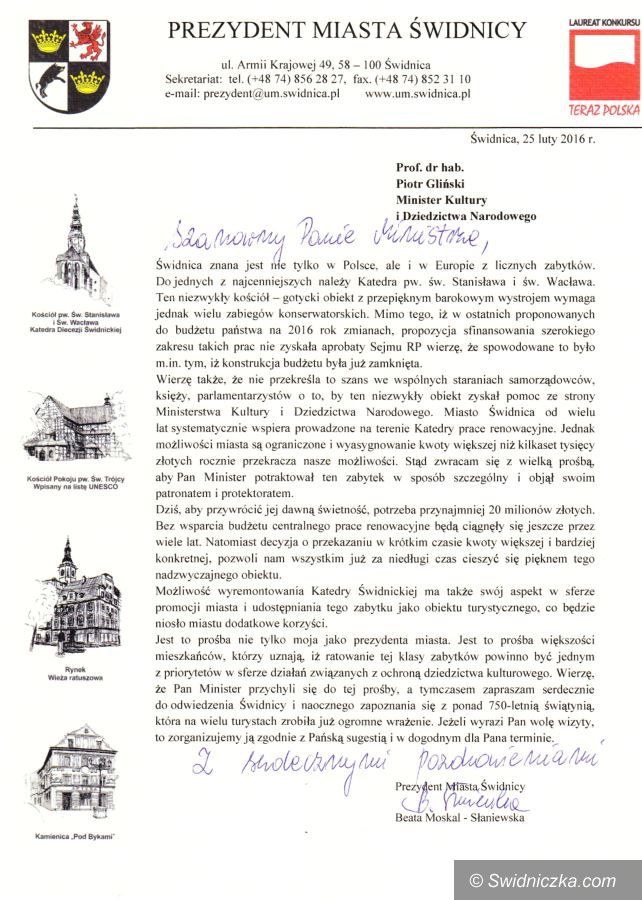 PREZYDENT MIASTA ŚWIDNICY
ul. Armii Krajowej 49, 58 – 100 Świdnica
Sekretariat: tel. (+48 74) 856 28 27, fax. (+48 74) 852 31 10
e-mail: prezydent@um.swidnica.pl www.um.swidnica.pl
LAUREAT KONKURSU
TERAZ POLSKA
Świdnica, 25 luty 2016 r.
Prof. dr hab.
Piotr Gliński
Minister Kultury
i Dziedzictwa Narodowego
Szanowny Panie Ministrze,
Świdnica znana jest nie tylko w Polsce, ale i w Europie z licznych zabytków.
Do jednych z najcenniejszych należy Katedra pw. św. Stanisława i św. Wacława.
Ten niezwykły kościół – gotycki obiekt z przepięknym barokowym wystrojem wymaga
jednak wielu zabiegów konserwatorskich. Mimo tego, iż w ostatnich proponowanych
do budżetu państwa na 2016 rok zmianach, propozycja sfinansowania szerokiego
zakresu takich prac nie zyskała aprobaty Sejmu RP wierzę, że spowodowane to było
m.in. tym, iż konstrukcja budżetu była już zamknięta.
Wierzę także, że nie przekreśla to szans we wspólnych staraniach samorządowców,
księży, parlamentarzystów o to, by ten niezwykły obiekt zyskał pomoc ze strony
Ministerstwa Kultury i Dziedzictwa Narodowego. Miasto Świdnica od wielu
lat systematycznie wspiera prowadzone na terenie Katedry prace renowacyjne. Jednak
możliwości miasta są ograniczone i wyasygnowanie kwoty większej niż kilkaset tysięcy
złotych rocznie przekracza nasze możliwości. Stąd zwracam się z wielką prośbą,
aby Pan Minister potraktował ten zabytek w sposób szczególny i objął swoim
patronatem i protektoratem.
Dziś, aby przywrócić jej dawną świetność, potrzeba przynajmniej 20 milionów złotych.
Bez wsparcia budżetu centralnego prace renowacyjne będą ciągnęły się jeszcze przez
wiele lat. Natomiast decyzja o przekazaniu w krótkim czasie kwoty większej i bardziej
konkretnej, pozwoli nam wszystkim już za niedługi czas cieszyć się pięknem tego
nadzwyczajnego obiektu.
Możliwość wyremontowania Katedry Świdnickiej ma także swój aspekt w sferze
promocji miasta i udostępniania tego zabytku jako obiektu turystycznego, co będzie
niosło miastu dodatkowe korzyści.
Jest to prośba nie tylko moja jako prezydenta miasta. Jest to prośba większości
mieszkańców, którzy uznają, iż ratowanie tej klasy zabytków powinno być jednym
z priorytetów w sferze działań związanych z ochroną dziedzictwa kulturowego. Wierzę,
że Pan Minister przychyli się do tej prośby, a tymczasem zapraszam serdecznie
do odwiedzenia Świdnicy i naocznego zapoznania się z ponad 750-letnią świątynią,
która na wielu turystach zrobiła już ogromne wrażenie. Jeżeli wyrazi Pan wolę wizyty,
to zorganizujemy ją zgodnie z Pańską sugestią i w dogodnym dla Pana terminie.
Z serdecznymi pozdrowieniami
Prezydent Miasta Świdnicy
Beata Moskal - Słaniewska
Kościół pw. Św. Stanisława
i Św. Wacława
Katedra Diecezji Świdnickiej
Kościół Pokoju pw. Św. Trójcy
Wpisany na listę UNESCO
Rynek
Wieża ratuszowa
Kamienica „Pod Bykami"
© Swidniczka.com